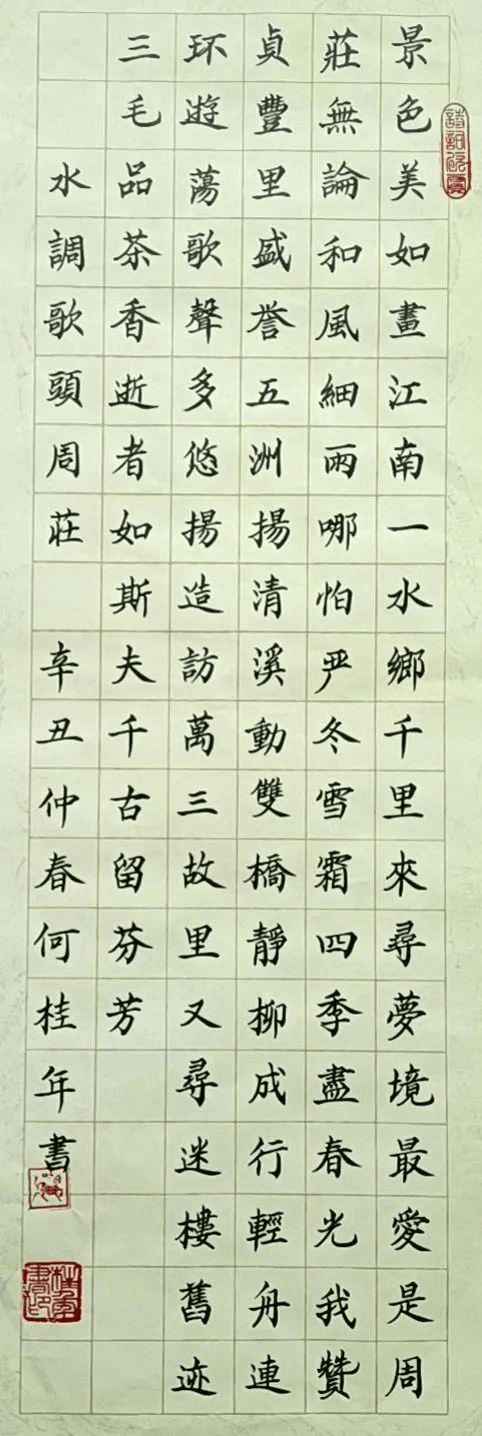 景色美如畫江南一水鄉千里來尋夢境最愛是周
莊無論和風細雨哪怕严冬雪霜四季盡春光我贊
貞豐里盛誉五洲揚清溪動雙橋靜柳成行輕舟連
环遊蕩歌聲多悠揚造訪萬三故里又尋迷樓舊迹
三毛品茶香逝者如斯夫千古留芬芳
水調歌頭周莊 辛丑仲春何桂年書